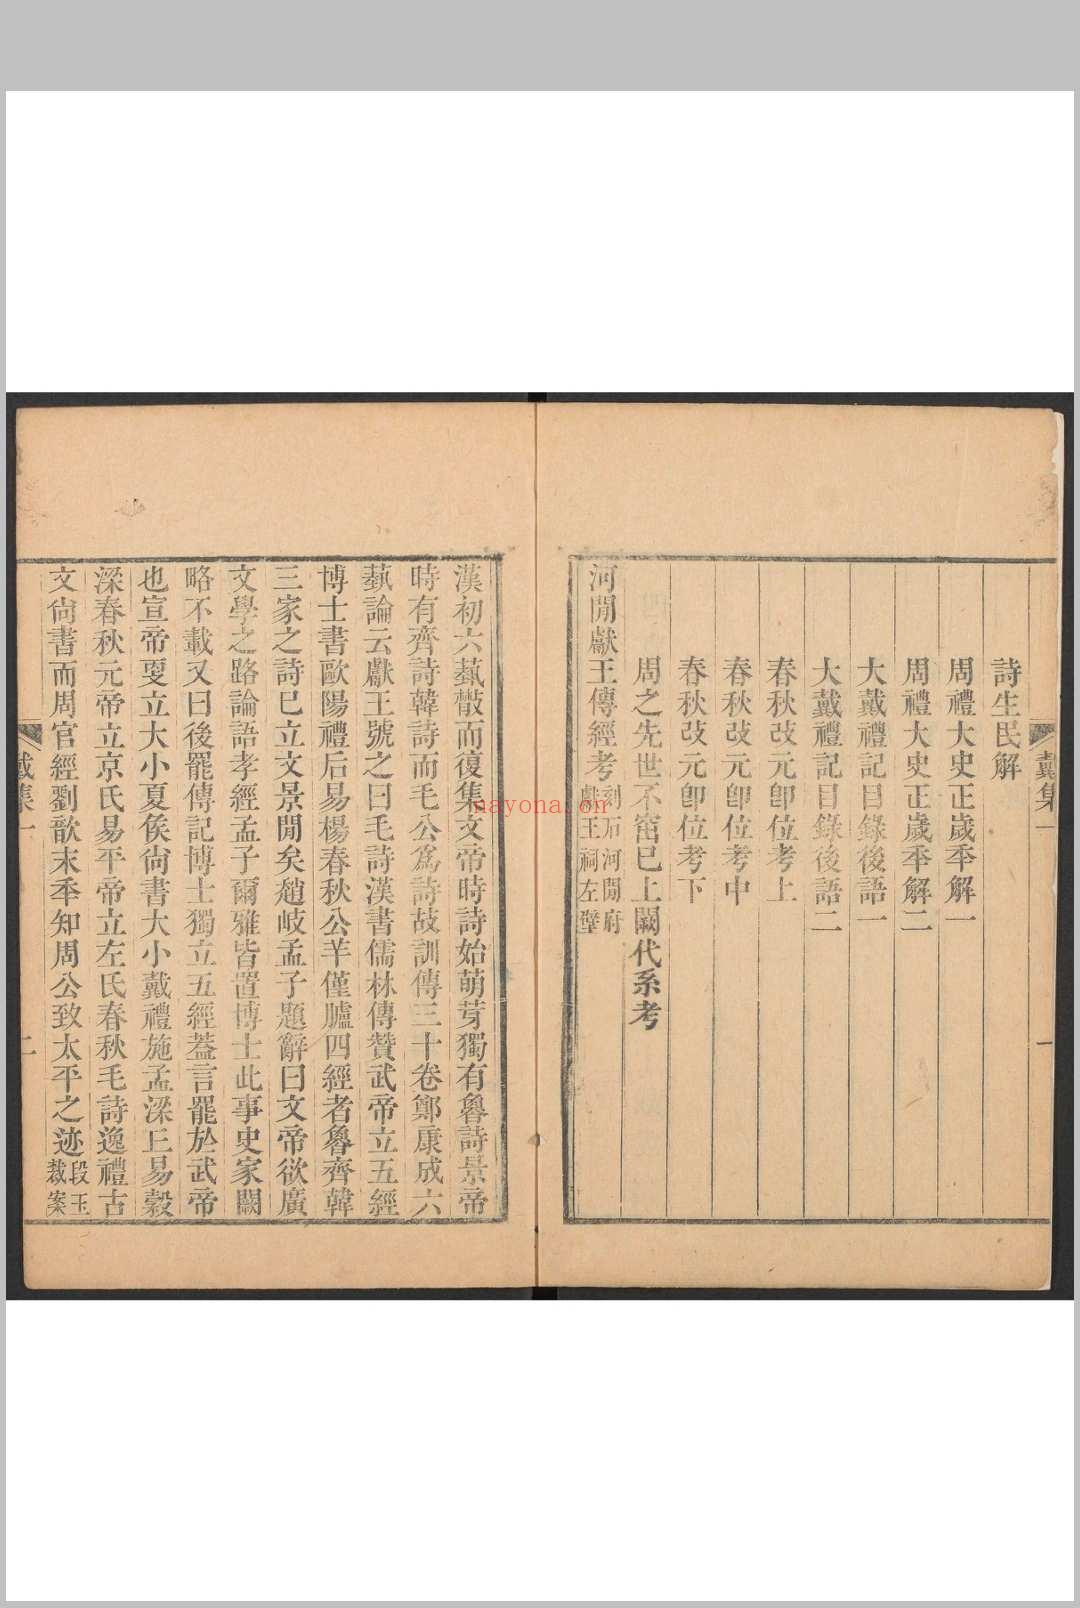 戴集一
一
詩生民解
周禮大史正歲秊解一
周禮大史正歲秊解二
大戴禮記目錄後語一
大戴禮記目錄後語二
春秋攺元卽位考上
春秋攺元卽位考中
春秋攺元卽位考下
周之先世不窋已上闕代系考
河閒獻王傳經考刻石河閒府獻王祠左壁
漢初六蓺㪚而復集文帝時詩始萌芽獨有魯詩景帝
時有齊詩韓詩而毛公爲詩故訓傳三十卷鄭康成六
蓺論云獻王號之曰毛詩漢書儒林傳贊武帝立五經
博士書歐陽禮后易楊春秋公羊僅臚四經者魯齊韓
三家之詩已立文景閒矣趙岐孟子題辭曰文帝欲廣
文學之路論語孝經孟子爾雅皆置博士此事史家闕
略不載又曰後罷傳記博士獨立五經蓋言罷於武帝
也宣帝㪅立大小夏矦尙書大小戴禮施孟梁丘易穀
梁春秋元帝立京氏易平帝立左氏春秋毛詩逸禮古
文尙書而周官經劉歆末秊知周公致太平之迹段玉裁案
戴集一
二
nayona.cn